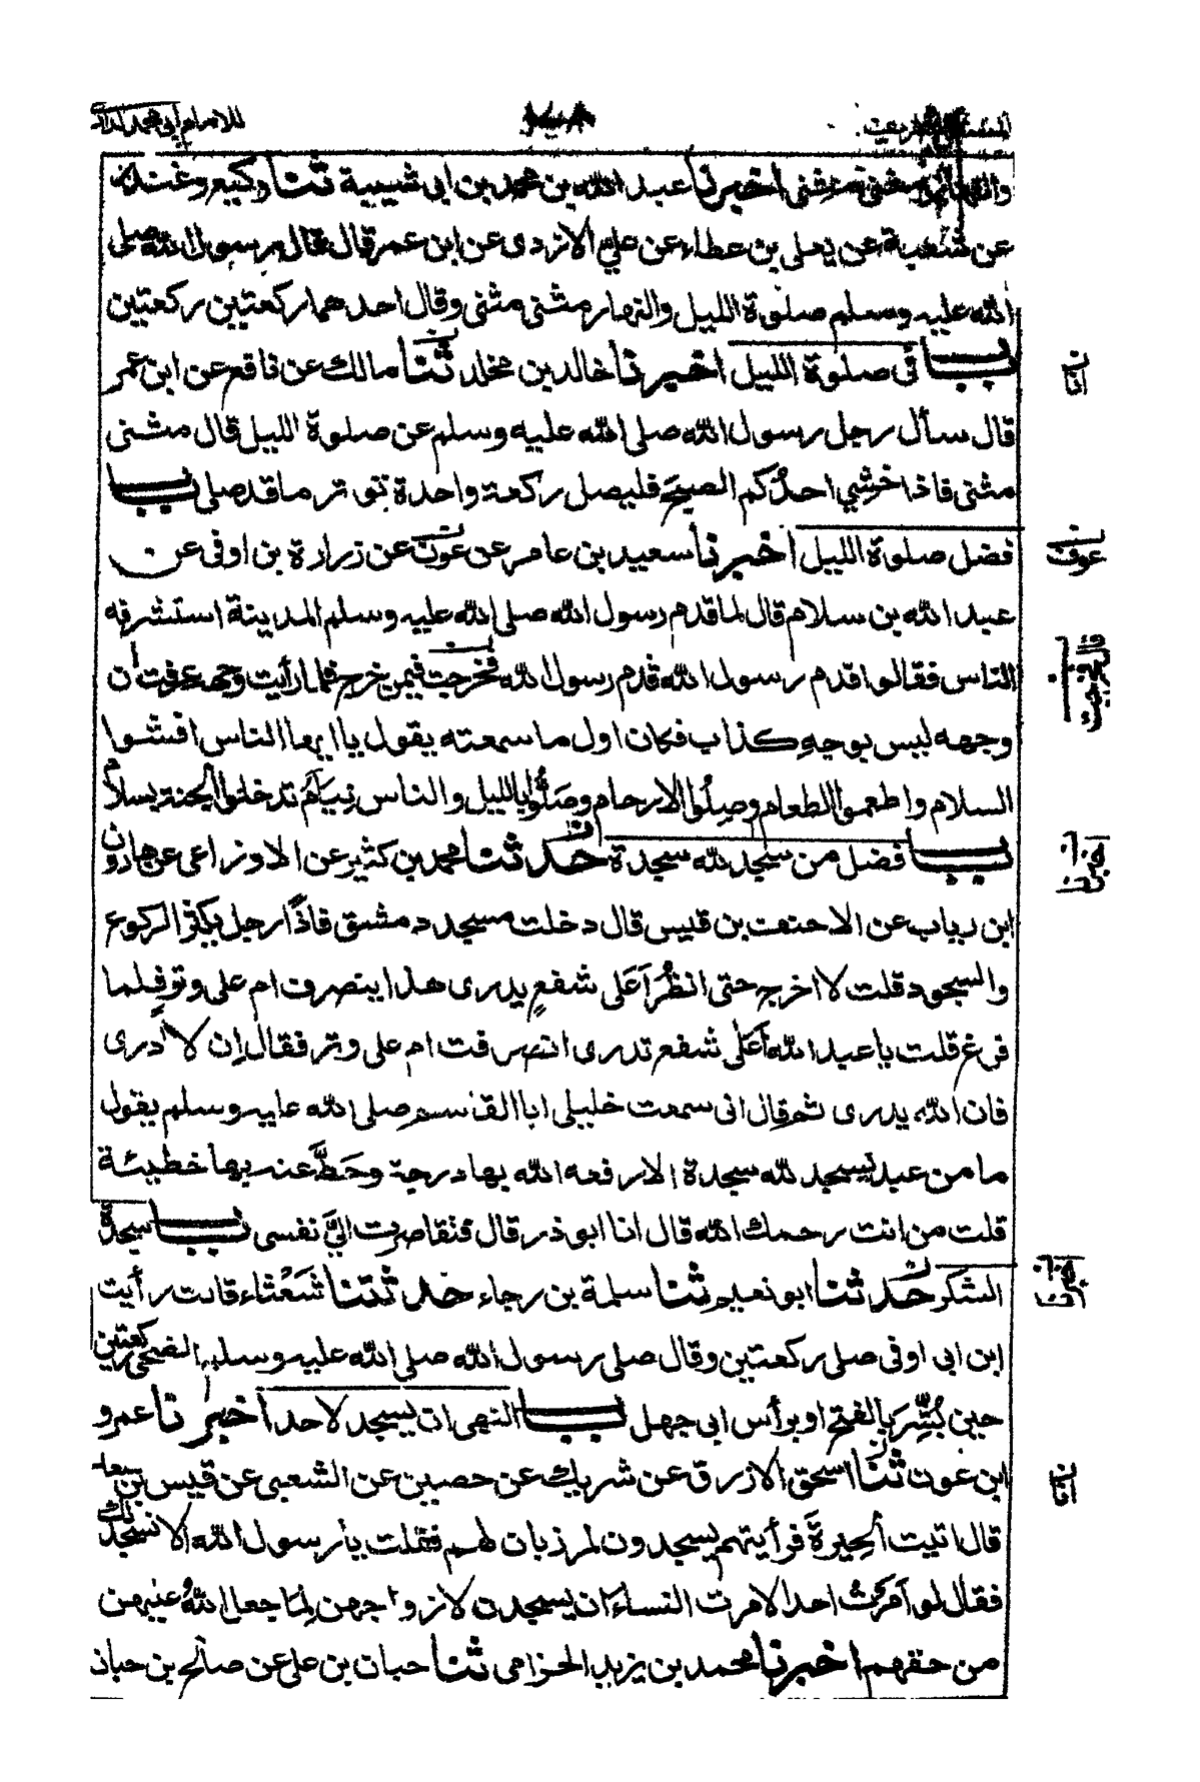 للامام ابی محمد الدارمی
مثنی مثنی اخبرنا عبد الله بن محمد بن ابی شیبة ثنا وکیع وغندر
عن شعبة عن یعلی بن عطاء عن علی الازدی عن ابن عمر قال قال رسول الله صلی
الله علیه وسلم صلوة اللیل والنهار مثنی مثنی وقال احدهما رکعتین رکعتین
باب فی صلوة اللیل اخبرنا خالد بن مخلد ثنا مالك عن نافع عن ابن عمر
قال سأل رجل رسول الله صلی الله علیه وسلم عن صلوة اللیل قال مثنی
مثنی فاذا خشی احدکم الصبح فلیصل رکعة واحدة توتر ما قد صلی باب
فضل صلوة اللیل اخبرنا سعید بن عامر عن عون عن زرارة بن اوفی عن
عبد الله بن سلام قال لما قدم رسول الله صلی الله علیه وسلم المدینة استشرفه
الناس فقالوا قدم رسول الله قدم رسول الله فخرجت فیمن خرج فلما رأیت وجهه عرفت ان
وجهه لیس بوجهِ کذاب فکان اول ما سمعته یقول یا ایها الناس افشوا
السلام واطعموا الطعام وصِلُوا الارحام وصَلُّوا باللیل والناس نِیَامٌ تدخلوا الجنة بسلام
باب فضل من سجد لله سجدة حدثنا محمد بن کثیر عن الاوزاعی عن هارون
ابن ریاب عن الاحنف بن قیس قال دخلت مسجد دمشق فاذا رجل یکثر الرکوع
والسجود قلت لا اخرج حتی انظُرَ أعَلی شفعٍ یدری هذا ینصرف ام علی وترٍ فلما
فرغ قلت یا عبد الله أعَلی شفع تدری انصرفت ام علی وتر فقال إن لا أدری
فان الله یدری ثم قال انی سمعت خلیلی ابا القاسم صلی الله علیه وسلم یقول
ما من عبد یسجد لله سجدة الا رفعه الله بها درجة وحَطَّ عنه بها خطیئة
قلت من انت رحمك الله قال انا ابو ذر قال فتقاصرت الیَّ نفسی باب سجدة
الشکر حدثنا ابو نعیم ثنا سلمة بن رجاء حدثتنا شَعْثَاء قالت رأیت
ابن ابی اوفی صلی رکعتین وقال صلی رسول الله صلی الله علیه وسلم الضحی رکعتین
حین بُشِّرَ بالفتح او برأس ابی جهل باب النهی ان یسجد لاحد اخبرنا عمرو
ابن عون ثنا اسحق الازرق عن شریك عن حصین عن الشعبی عن قیس بن سعد
قال اتیت الحِیرةَ فرأیتهم یسجدون لمرزبان لهم فقلت یا رسول الله الا نسجد لك
فقال لو أمرتُ احدا لامرت النساء ان یسجدن لازواجهن لِمَا جعل اللهُ علیهن
من حقهم اخبرنا محمد بن یزید الحزامی ثنا حبان بن علی عن صالح بن حبان
انا
عوف
اخبرنا
انا